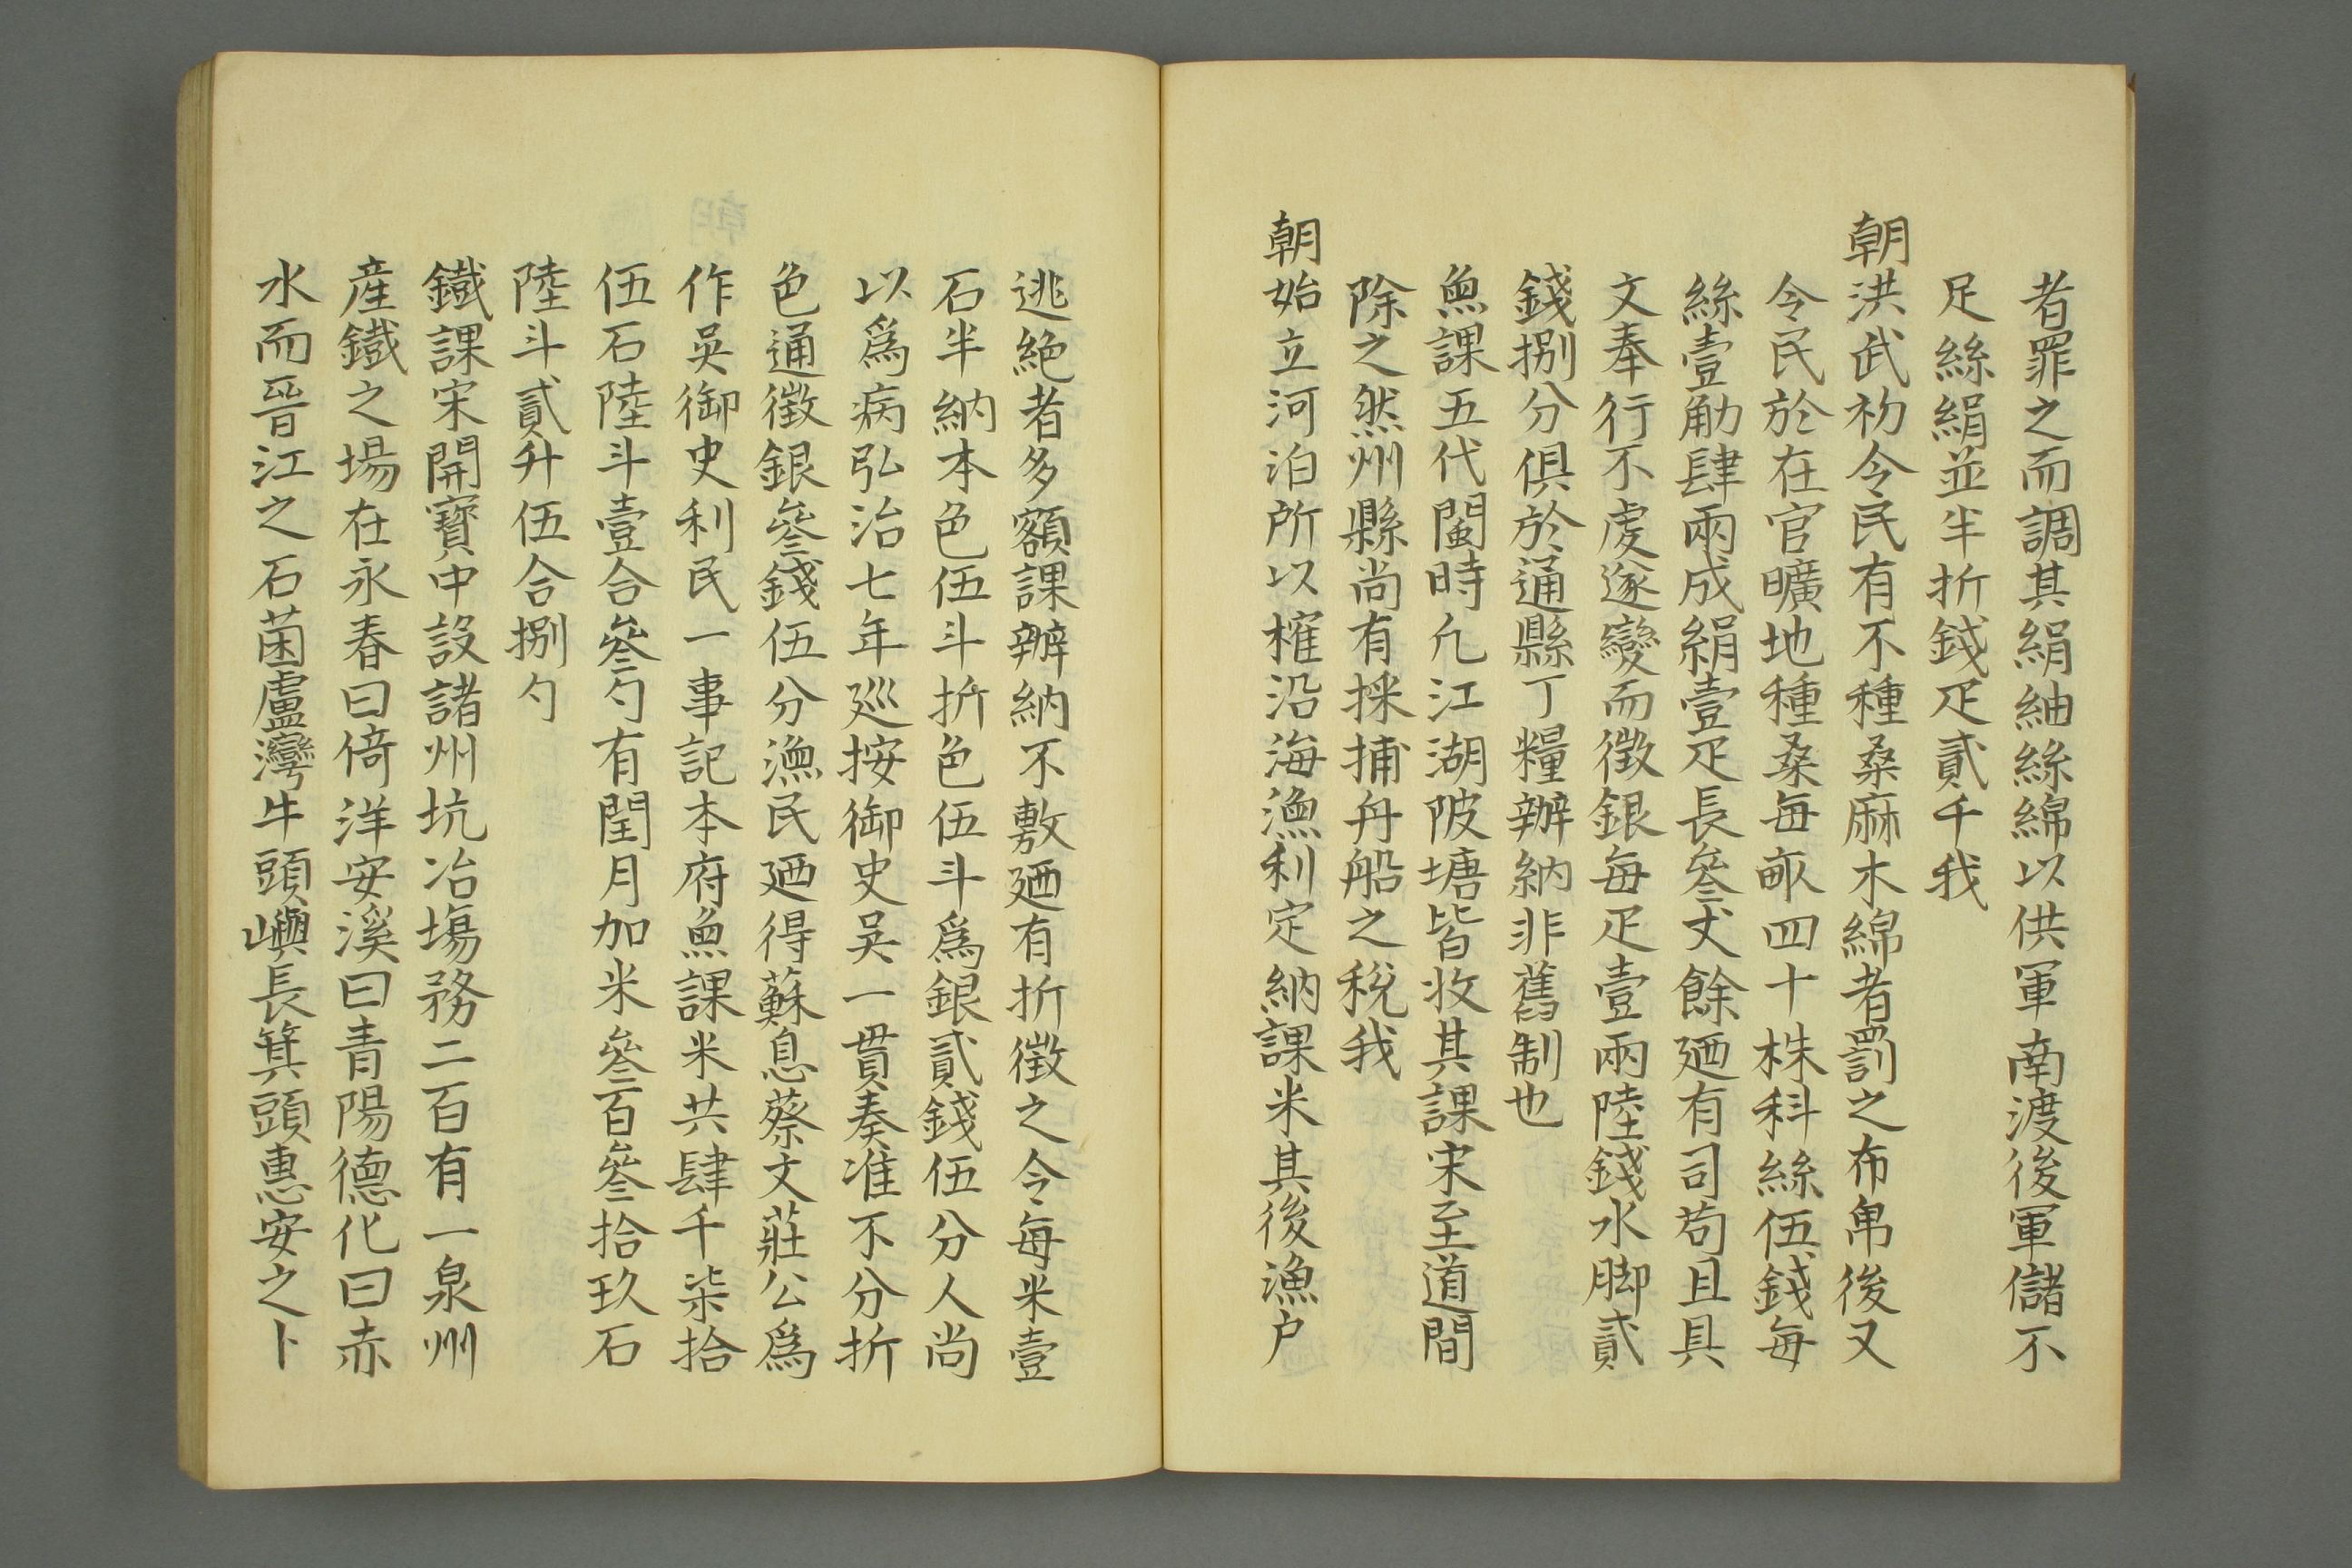 者罪之而調其絹紬絲綿以供軍南渡後軍儲不
足絲絹並半折錢疋貳千我
朝洪武初令民有不種桑麻木綿者罰之布帛後又
令民於在官曠地種桑每畝四十株科絲伍錢每
絲壹觔肆兩成絹壹疋長叄丈餘廼有司苟且具
文奉行不虔遂變而徴銀每疋壹兩陸錢水脚貳
錢捌分俱於通縣丁糧辦納非舊制也
魚課五代閩時凢江湖陂塘皆收其課宋至道間
除之然州縣尚有採捕舟船之稅我
朝始立河泊所以榷沿海漁利定納課米其後漁户
逃絶者多額課辦納不敷廼有折徴之令每米壹
石半納本色伍斗折色伍斗爲銀貳錢伍分人尚
以爲病弘治七年廵按御史吳一貫奏准不分折
色通徴銀叄錢伍分漁民廼得蘇息蔡文莊公爲
作吳御史利民一事記本府魚課米共肆千柒拾
伍石陸斗壹合叄勺有閏月加米叄百叄拾玖石
陸斗貳升伍合捌勺
鐵課宋開寶中設諸州坑冶塲務二百有一泉州
産鐵之場在永春曰倚洋安溪曰青陽德化曰赤
水而晉江之石菌盧灣牛頭嶼長箕頭惠安之卜